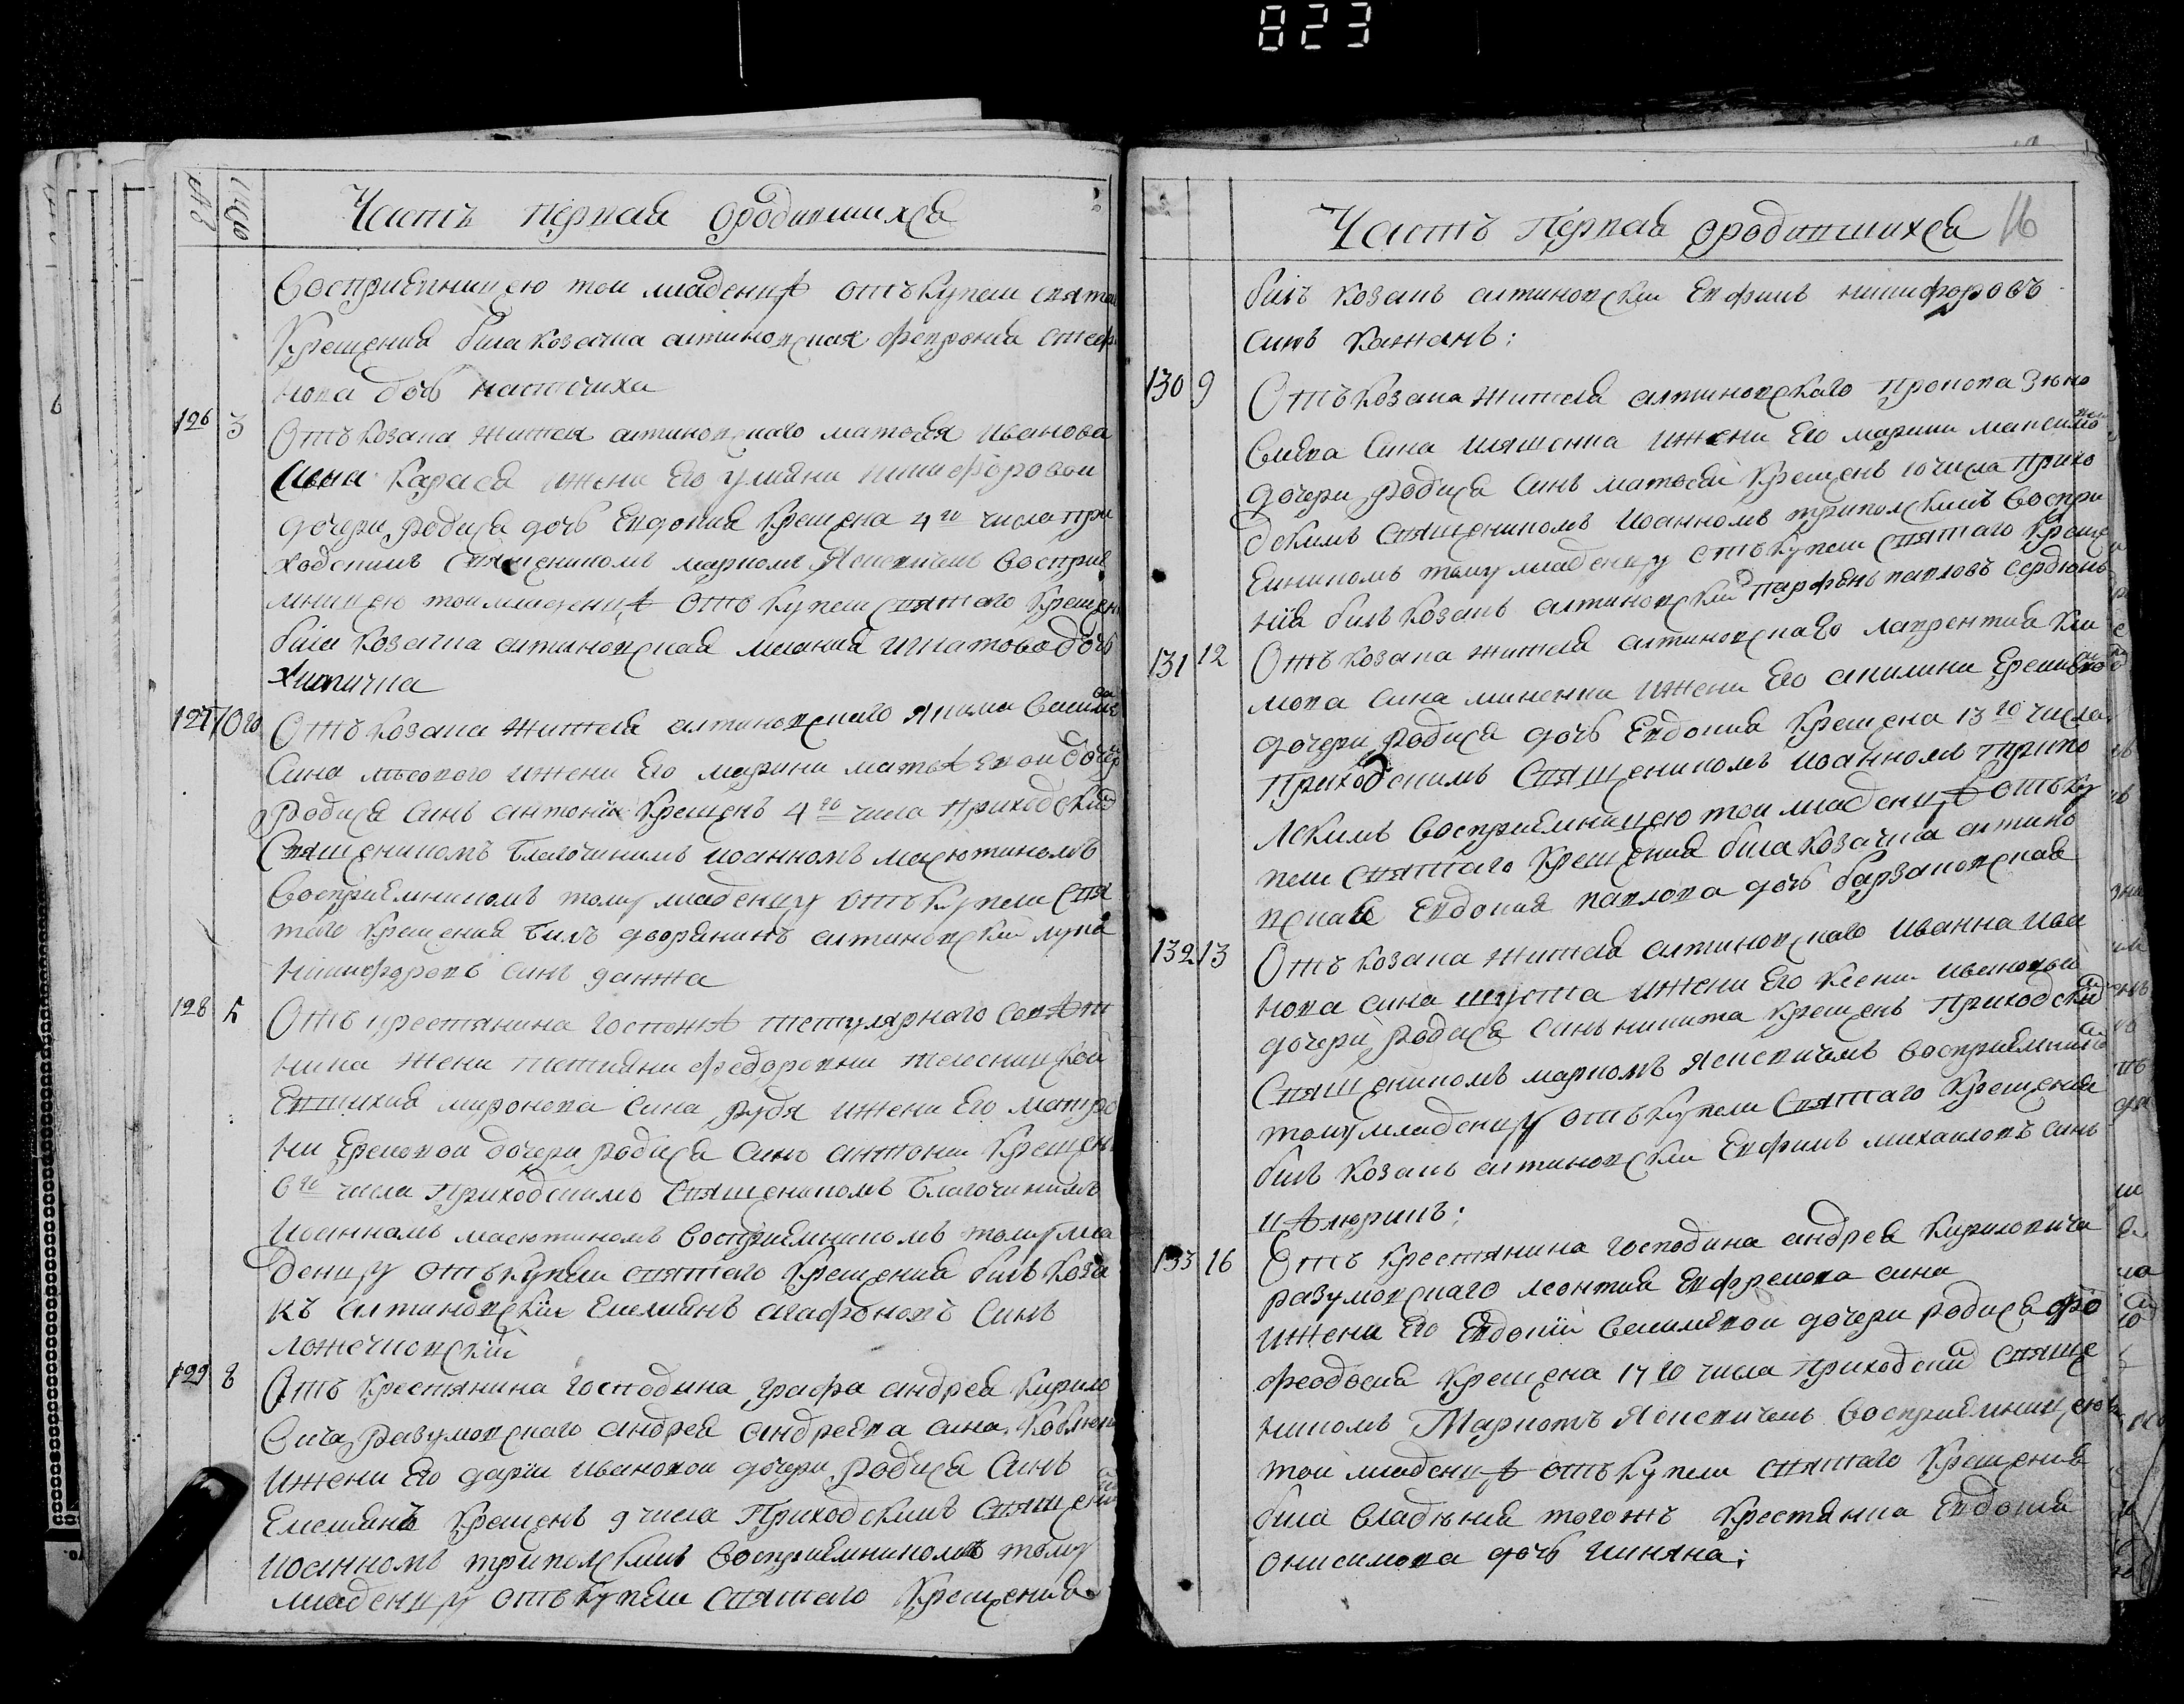 823
№
Число
Часть первая ородившихся
Восприемницею той младенцѣ отъ купели свято
Крещения била козачка алтиновская февронія стеф
нова дочь
126 3
Отъ козака жителя алтиновскаго матвея иванова
сина карася ижени его уляни никифоровои
дочери родися дочь евдокия крещена 4го числа при
ходскимъ священикомъ маркомъ Ясневичемъ восприе
мницею той младенцѣ отъ купели святаго крещен
била козачка алтиновская мелания игнатова дочь
127 10го
Отъ козака жителя алтиновскаго якима васил
сина ижени его марини матвѣевои дочер
родися синъ антоній крещенъ 4го числа приходским
священикомъ благочинимъ иоанномъ масютиномъ
Восприемникомъ тому младенцу отъ купели свя
таго крещения билъ дворянинъ алтиновский лука
никифоровъ синъ данжа
128 5
Отъ крестянина госпожѣ титулярнаго совѣт
ника жени татияни федоровни
евтихия миронова сина рудя ижени его матро
ни дочери родися синъ антоний крещен
6го числа приходскимъ священикомъ благочинимъ
иоанномъ масютиномъ восприемникомъ тому мла
денцу отъ купели святаго крещения билъ коза
къ алтиновский емелиянъ агафоновъ синъ
129 8
Отъ крестянина господина графа андрея кирило
вича разумовскаго андрея андреева сина
ижени его дарии ивановои дочери родися синъ
емелиянъ крещенъ 9 числа приходскимъ священи
иоанномъ триполскимъ восприемникомъ тому
младенцу отъ купели святаго крещения
Часть первая ородившихся 16
билъ козакъ алтиновский евфимъ никифоровъ
синъ кажанъ:
130 9
Отъ козака жителя алтиновскаго прокопа зѣно
виева сина иляшенка ижени его марини максимо
дочери родися синъ матвей крещенъ 10 числа прихо
дскимъ священикомъ иоанномъ триполскимъ воспри
емникомъ тому младенцу отъ купели святаго креще
ния билъ козакъ алтиновский парфѣнъ павловъ сердюкъ
131 12
Отъ козака жителя алтиновскаго лаврентия кли
мова сина миненка ижени его акилини
дочери родися дочь евдокия крещена 13го числа
приходскимъ священикомъ иоанномъ трипо
лскимъ восприемницею той младенцѣ отъ ку
пели святаго крещения била козачка алтино
вская евдокия павлова дочь барзаковская
132 13
Отъ козака жителя алтиновскаго иванна ива
нова сина шуста ижени его ксении ивановои
дочери родися синъ никита крещенъ приходским
священикомъ маркомъ Ясневичемъ восприемником
тому младенцу отъ купели святаго крещения
билъ козакъ алтиновский евфимъ михаиловъ синъ
цѣлюрикъ:
133 16
Отъ крестянина господина андрея кириловича
разумовскаго леонтия евфремова сина
ижени его евдокии василиевои дочери родися
феодосия крещена 17го числа приходским свяще
никомъ Маркомъ Ясневичемъ восприемницею
той младенцѣ отъ купели святаго крещения
била владѣния тогожъ крестянка евдокия
онисимова дочь